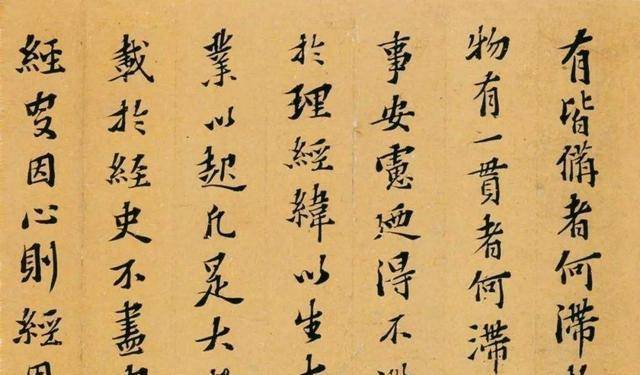 有皆備者何滯
物有一貫者何滯
事安慮廼得不
於理經緯以生
業以起凡是大
載於經史不盡
經因心則經